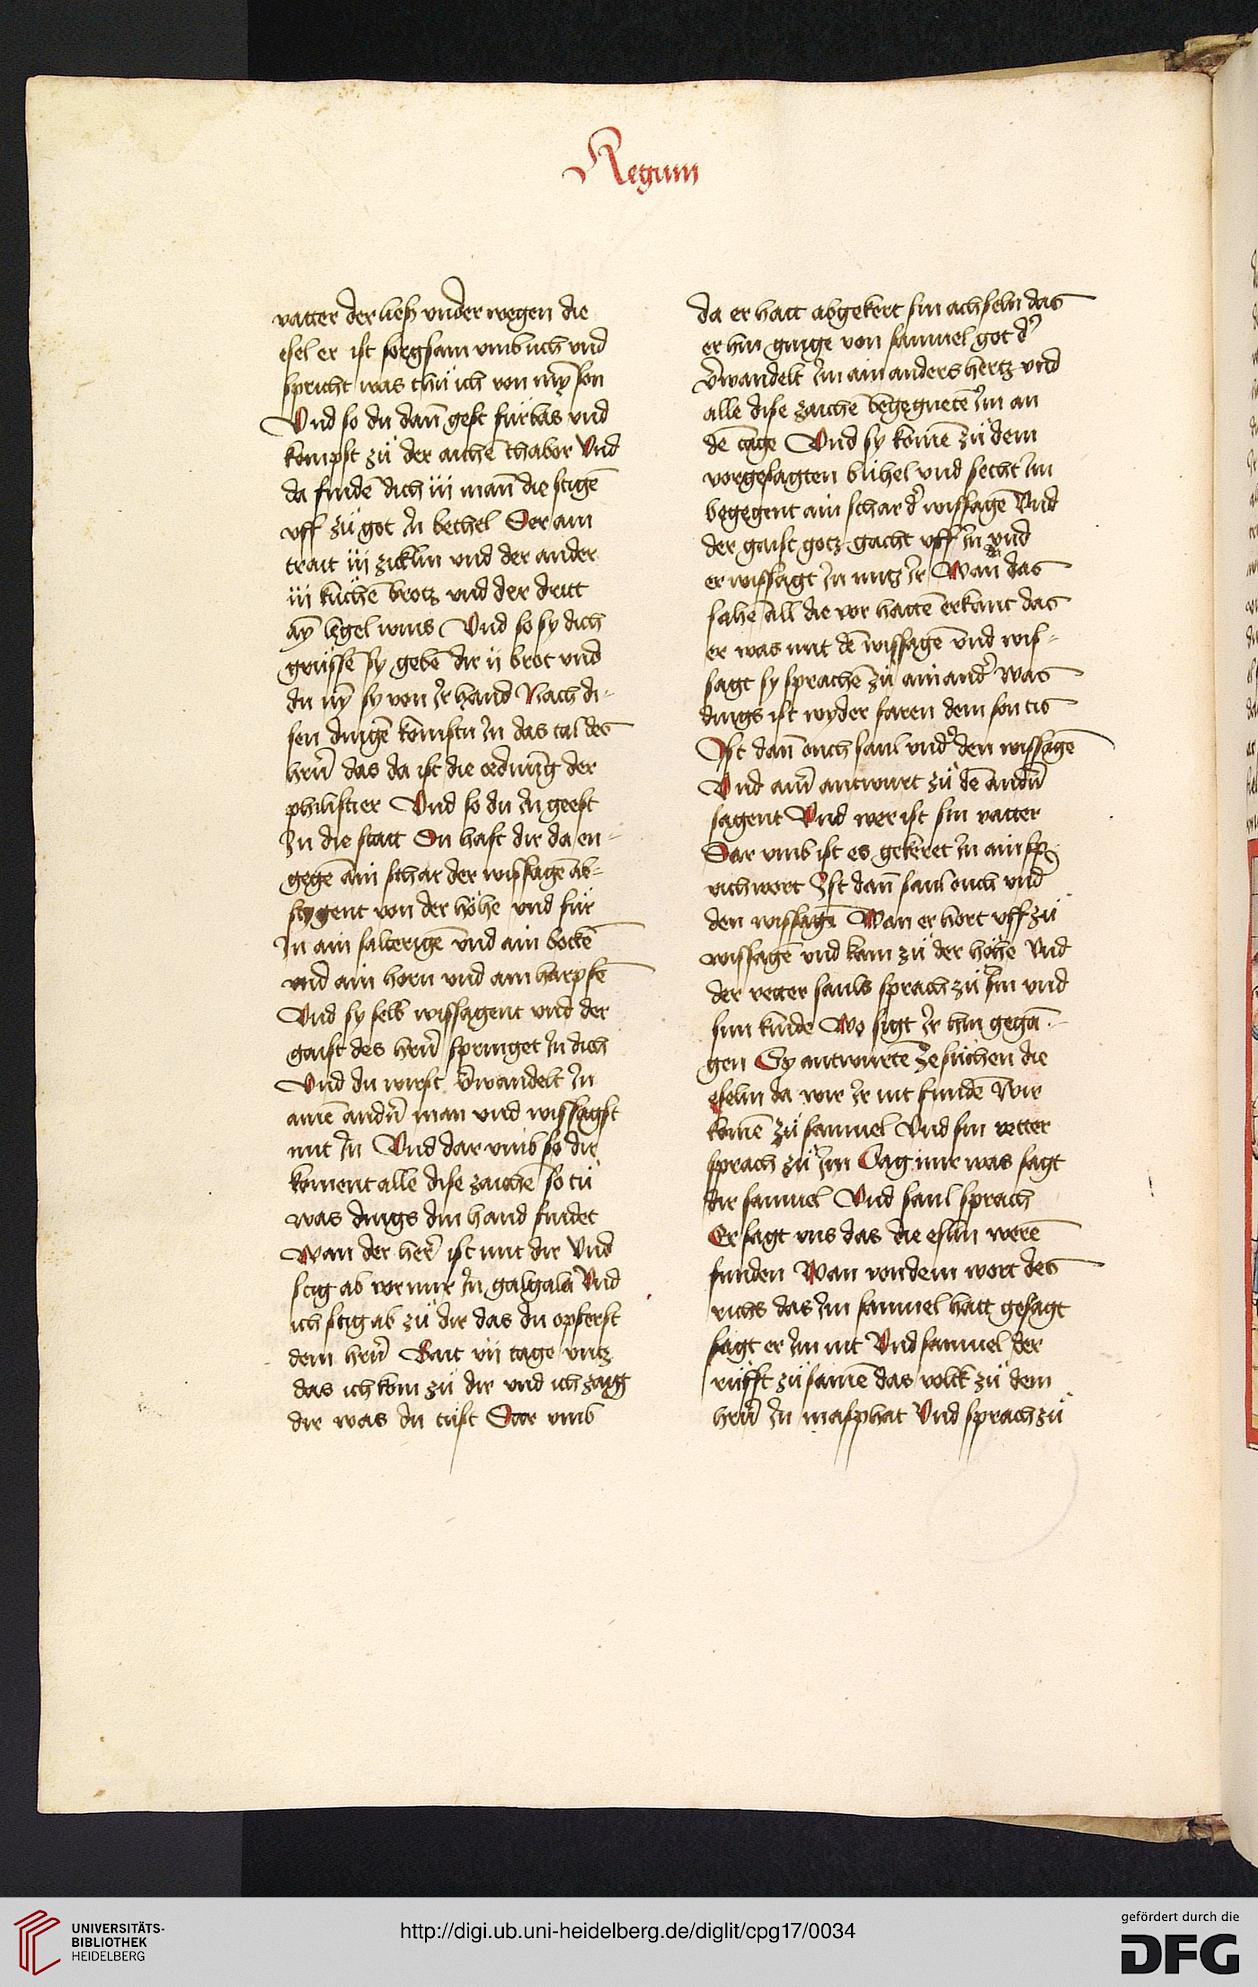 Regum
vatter der ließ vnder wegen die
esel er ist sorgsam vmb uch vnd
spricht was thü ich von mȳ son
Vnd so du dan̄ gest fürbas vnd
kompst zü der aichē thabor Vnd
da findē dich iij man̄ die stigē
vff zü got In bethel Der ain
trait iij zicklin vnd der ander
iij küchē brotz vnd der dritt
aȳ legel wins Vnd so sy dich
grüssē sy gebē dir ij brot vnd
du nȳ sy von Ir hand Nach di-
sen dingē komstu In das tal des
herr̄ das da ist die ordnūg der
philistier Vnd so du In geest
In die statt Du hast dir da en-
gegē ain schar der wissagē ab-
stygent von der höhe vnd für
In ain salterigē vnd ain bockē
vnd ain horn vnd ain harpfē
Vnd sy selb wissagent vnd der
gaist des herr̄ springet In dich
Vnd du wirst v̄wandelt In
ainē andr̄n man vnd wissagst
mit In Vnd dar vmb so dir
koment alle dise zaichē so tü
was dings din hand findet
Wan der her̄ ist mit dir Vnd
stig ab vor mir In galgala Vnd
ich stig ab zü dir das du opferst
dem herr̄ Bait vij tage vntz
das ich kom zü dir vnd ich zaig
dir was du tüst Dar vmb
da er hatt abgekert sin achseln das
er hin ginge von samuel got d̾
v̄wandelt Im ain anders hertz vnd
alle dise zaichē begegnetē Im an
dē tage Vnd sy komē zü dem
vorgesagten bühel vnd secht Im
begegent ain schar d̾ wissagē Vnd
der gaist gotz gacht vff In vnd
er wissagt In mitz Ir Wan das
sahē all die vor hattē erkant das
er was mit dē wissagē vnd wis-
sagt sy sprachē zü ainand̾ Was
dings ist wyder faren dem son cis
Ist dan̄ ouch saul vnd̾ den wissagē
Vnd ain̄ antwurt zü dē andr̄n
sagent Vnd wer ist sin vatter
Dar vmb ist es gekeret In ain sp-
richwort Ist dan̄ saul ouch vnd̾
den wissagē Wan er hört vff zü
wissagē vnd kam zü der höhe Vnd
der vetter sauls sprach zü Im vnd
sim kinde Wo sigt Ir hin gegā-
gen Sy antwurtē Ze süchen die
eselin da wir Ir nit fundē Wir
komē zü samuel Vnd sin vetter
sprach zü Im Sag mir was sagt
dir samuel Vnd saul sprach
Er sagt vns das die eslin werē
funden Wan von dem wort des
richs das Im samuel hatt gesagt
sagt er Im nit Vnd samuel der
rüfft züsamē das volck zü dem
herr̄ In masphat Vnd sprach zü
UNIVERSITÄTS-
BIBLIOTHEK
HEIDELBERG
http://digi.ub.uni-heidelberg.de/diglit/cpg17/0034
gefördert durch die
DFG